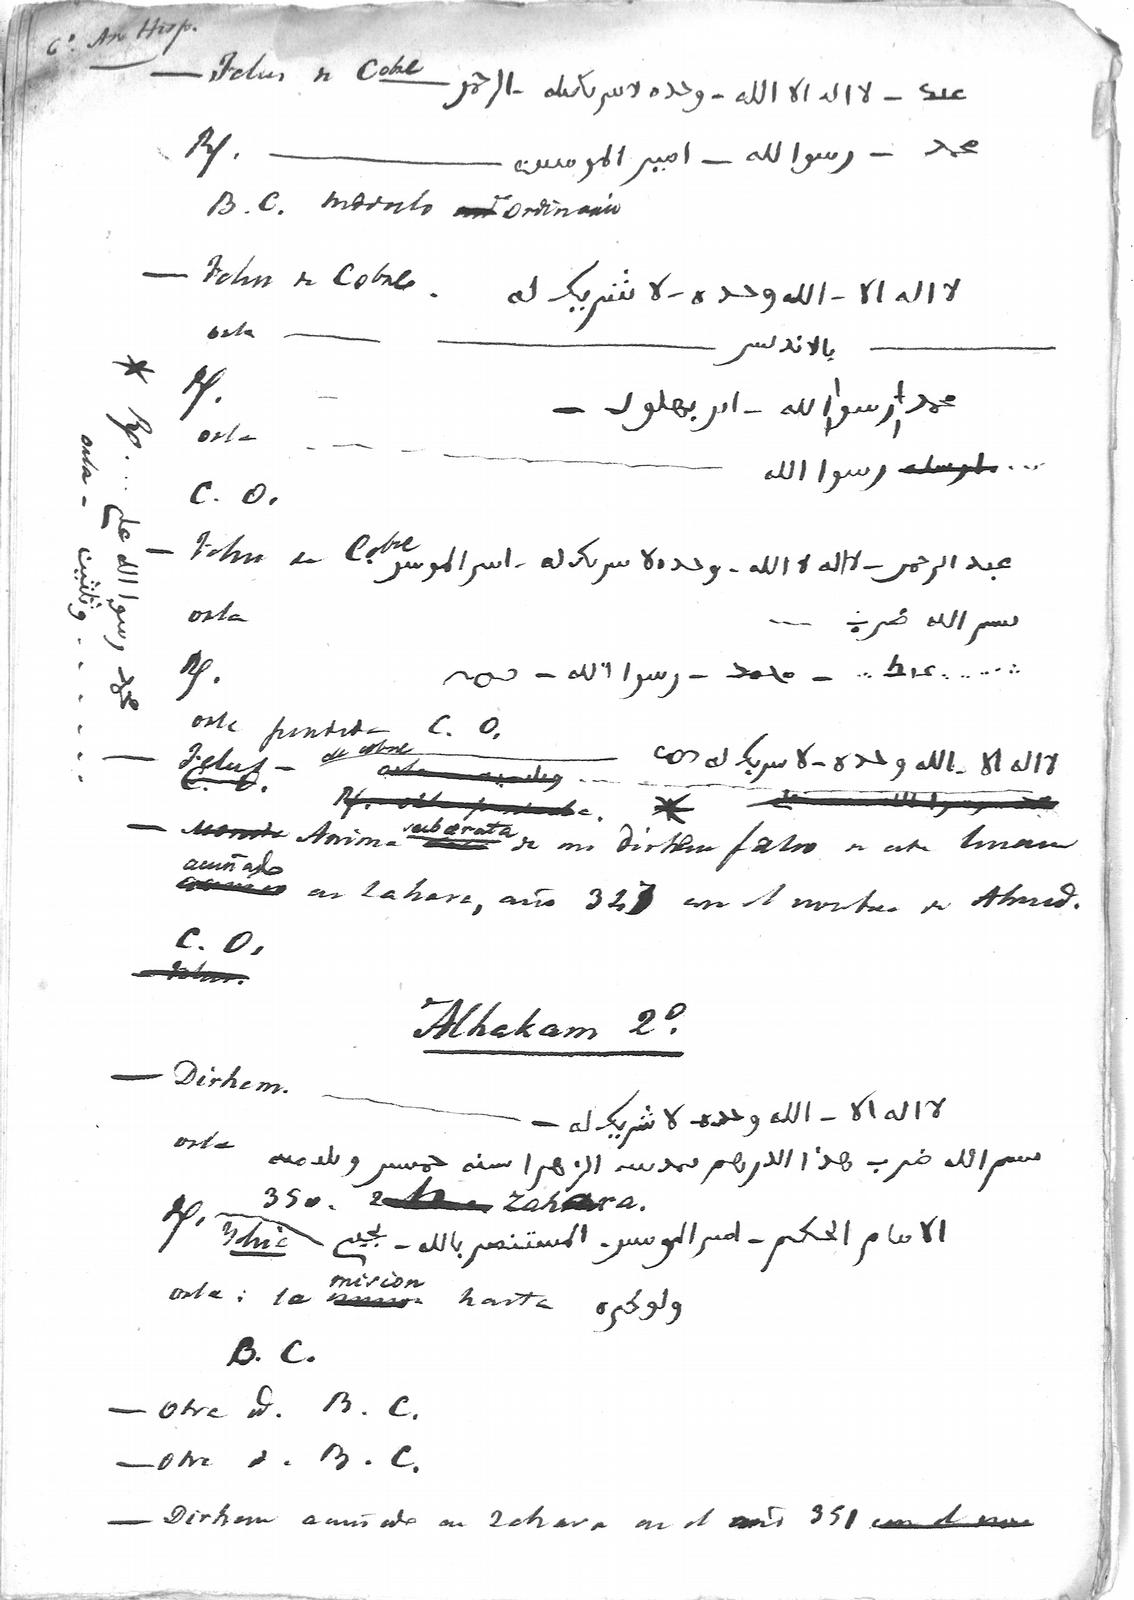 6º Ar Hisp.
— Felus de Cobre عبد – لا اله الا الله – وحده لا سريك له – الرحمن
Rf. محمد – رسوا لله – امير المومنين
B.C. modulo ordinario
— Felus de Cobre. لا اله الا – الله وحده – لا شريك له
orla بالاندلس
Rf. محمد رسوا لله – ابن بهلول –
orla ... رسوا الله
C. O.
— Felus de Cobre عبد الرحمن – لا اله لا الله – وحده لا سريك له – امير المومنين
orla بسم الله ضرب
Rf. محمد – رسوا الله –
orla perdida C. O.
— Felus – de cobre لا اله الا – الله وحده – لا سريك له
C. O.
Rf. orla perdida. *
— Anima suberata de un dirhem falso de este Imam
acuñado en Zahara, año 327 con el nombre de Ahmed.
C. O.
Felus.
* Rf. ... محمد رسوا الله على
orla - وثلثين . . . .
Alhakam 2º.
— Dirhem. لا اله الا – الله وحده لا شريك له –
orla بسم الله ضرب هذا الدرهم بمدينة الزهرا سنة خمسين وثلثمية
350. Zahara.
Rf. الامام الحكم – امير المومنين. المستنصر بالله –
orla: la mision hasta ولو كره
B. C.
— Otro d. B. C.
— Otro d. B. C.
— Dirhem acuñado en Zahara en el año 351 con el